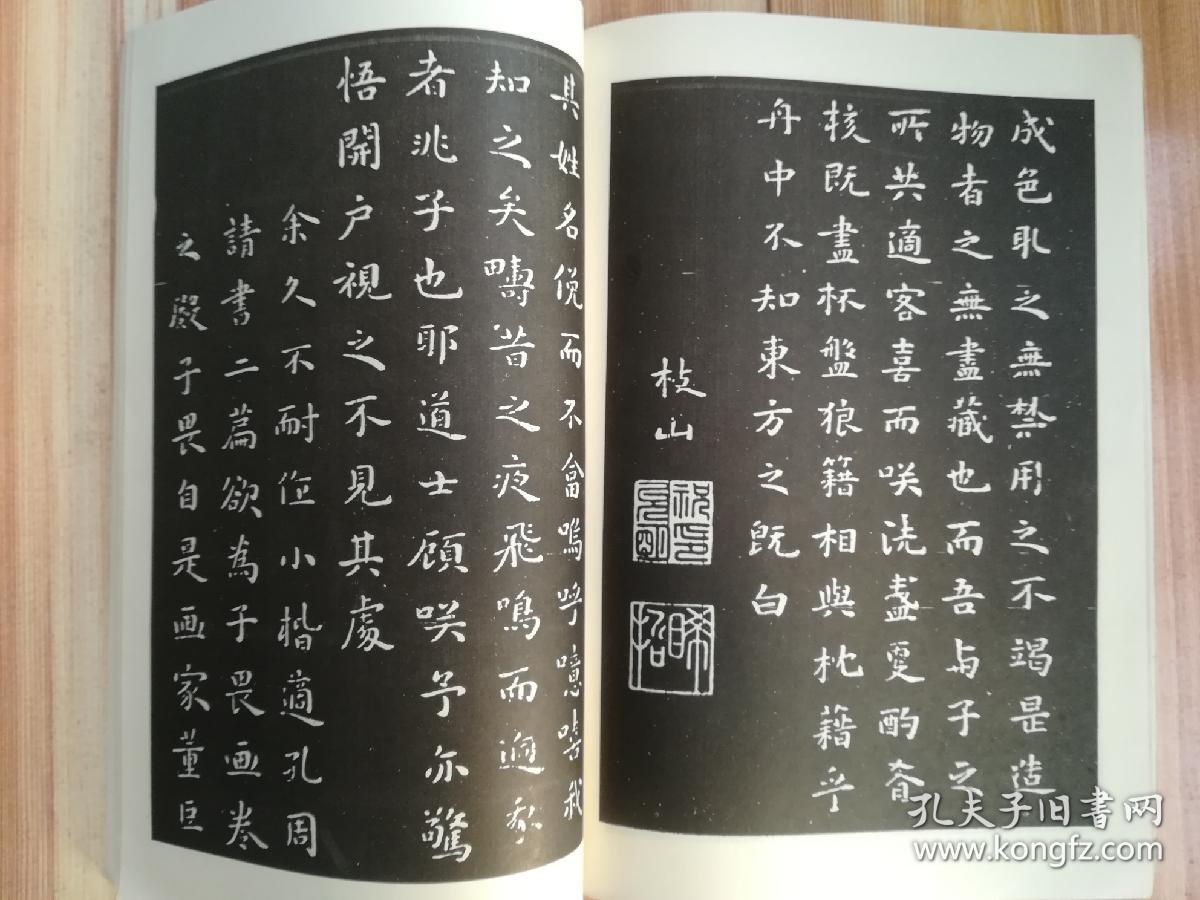 成色取之無禁用之不竭是造
物者之無盡藏也而吾与子之
所共適客喜而咲洗盞更酌肴
核既盡杯盤狼籍相與枕藉乎
舟中不知東方之既白
枝山
祝印允明
其姓名俛而不畣嗚呼噫嘻我
知之矣疇昔之夜飛鳴而過我
者非子也耶道士顧咲予亦驚
悟開户視之不見其處
余久不耐作小楷適孔周
請書二篇欲為子畏画卷
之殿子畏自是画家董巨
孔夫子旧书网
www.kongfz.com